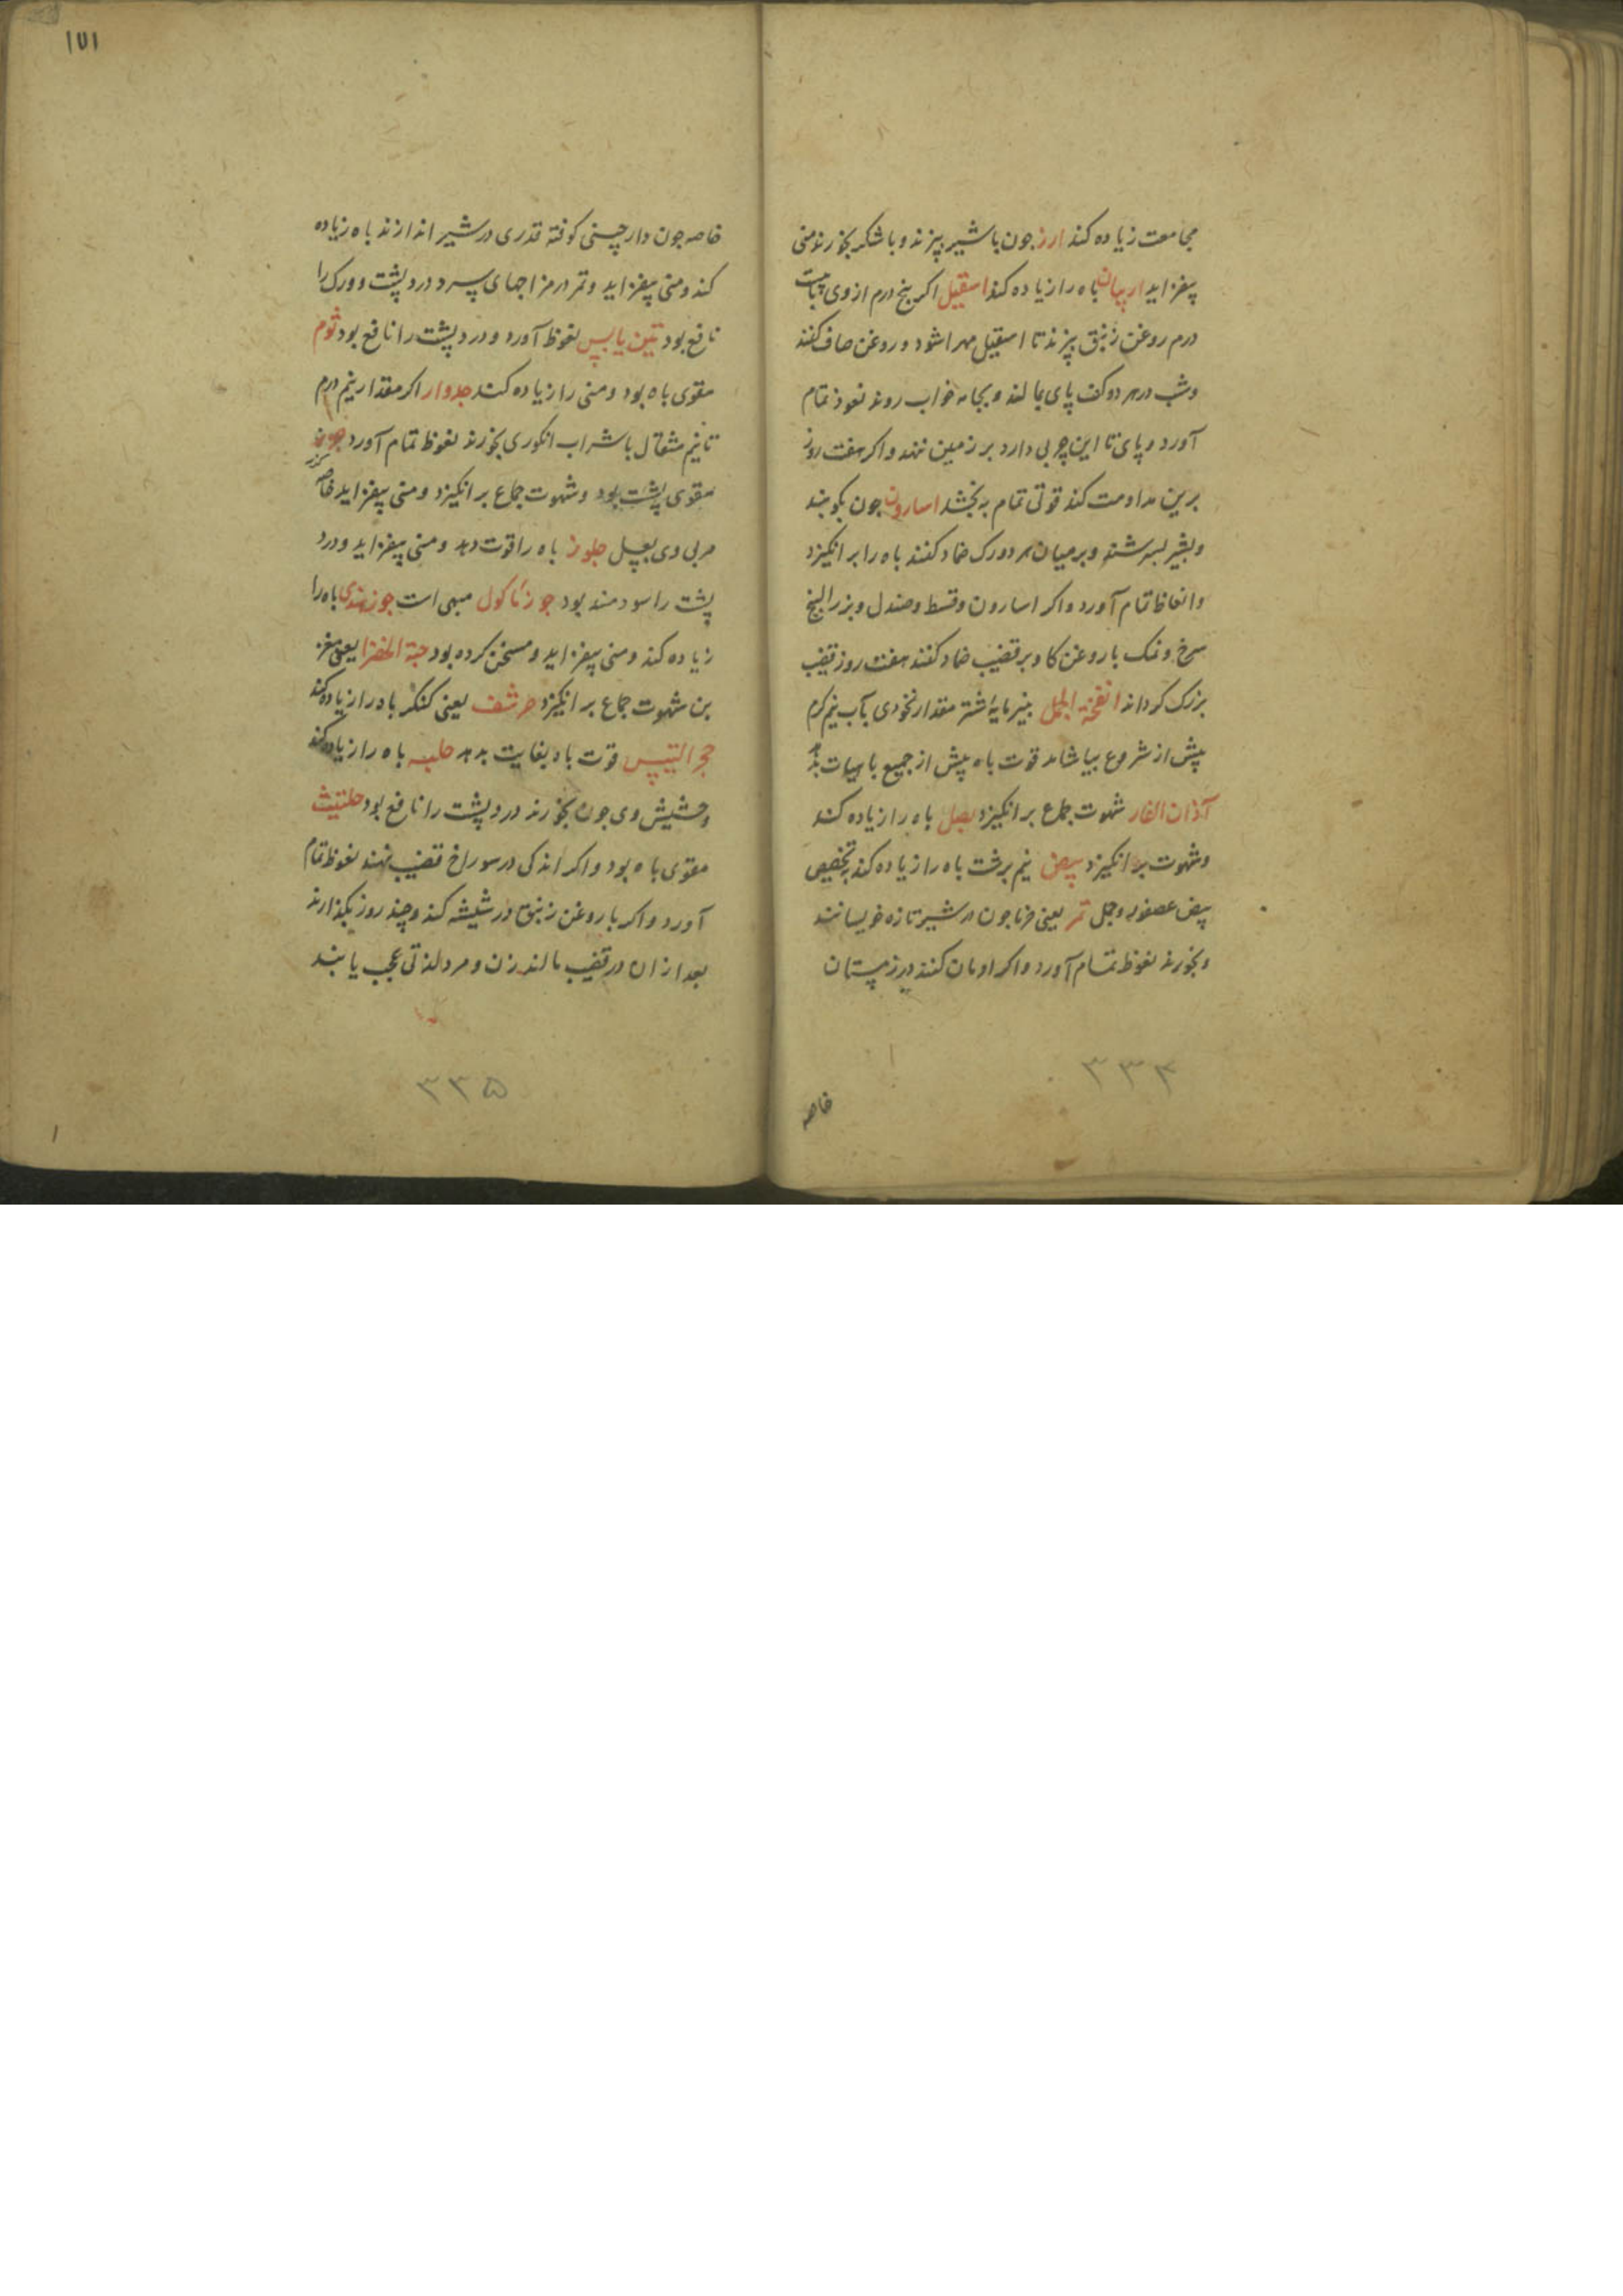 مجامعت زیاده کند ارز جون باشیر بپزند و با شکر بخورند منی
بیفزاید اربیان باه را زیاده کند اسقیل اکر پنج درم از وی بابیست
درم روغن زنبق بپزند تا اسقیل مهرا شود و روغن صاف کنند
وشب در هر دو کف پای بمالند و بجامه خواب روند نعوذ تمام
آورد و پای تا این چربی دارد بر زمین ننهد و اکر هفت روز
برین مداومت کند قوتی تمام بخشد اسارون جون بکوبند
و بشیر بسرشند و بر میان هر دو ورک ضماد کنند باه را بر انکیزد
وانعاظ تمام آورد و اکر اسارون و قسط و صندل و بزر البنج
سرخ و نمک با روغن کاو بر قضیب ضماد کنند هفت روز قضیب
بزرک کرداند انفخة الجمل پنیر مایۀ شتر مقدار نخودی بآب نیم کرم
پیش از شروع بیاشامد قوت باه پیش از جمیع باهیات بدهد
آذان الفار شهوت جماع بر انکیزد بصل باه را زیاده کند
وشهوت بر انکیزد بیض نیم برشت باه را زیاده کند بتخصیص
بیض عصفور و حجل تمر یعنی خرما جون در شیر تازه خویسانند
و بخورند نعوظ تمام آورد و اکر ادمان کنند در زمستان
خاصه
۳۳۴
۱۷۱
خاصه جون دارچینی کوفته قدری در شیر اندازند باه زیاده
کند و منی بیفزاید و تمر در مزاجهای سرد درد پشت و ورک را
نافع بود تین یابس نعوظ آورد و درد پشت را نافع بود ثوم
مقوی باه بود و منی را زیاده کند جدوار اکر مقدار نیم درم
تا نیم مثقال با شراب انکوری بخورند نعوظ تمام آورد جزر
مقوی پشت بود و شهوت جماع بر انکیزد و منی بیفزاید خاصه
مربی وی بعسل جلوز باه را قوت دهد و منی بیفزاید و درد
پشت را سودمند بود جوز ماکول مبهی است جوز هندی باه را
زیاده کند و منی بیفزاید و مسخن کرده بود حبة الخضرا یعنی مغز
بن شهوت جماع بر انکیزد حرشف یعنی کنکر باه را زیاده کند
حجر التیس قوت باه بغایت بدهد حلبه باه را زیاده کند
و حشیش وی جون بخورند درد پشت را نافع بود حلتیث
مقوی باه بود و اکر اندکی در سوراخ قضیب نهند نعوظ تمام
آورد و اکر با روغن زنبق در شیشه کند و چند روز بکذارند
بعد از ان در قضیب مالند زن و مرد لذتی عجب یابند
۳۳۵